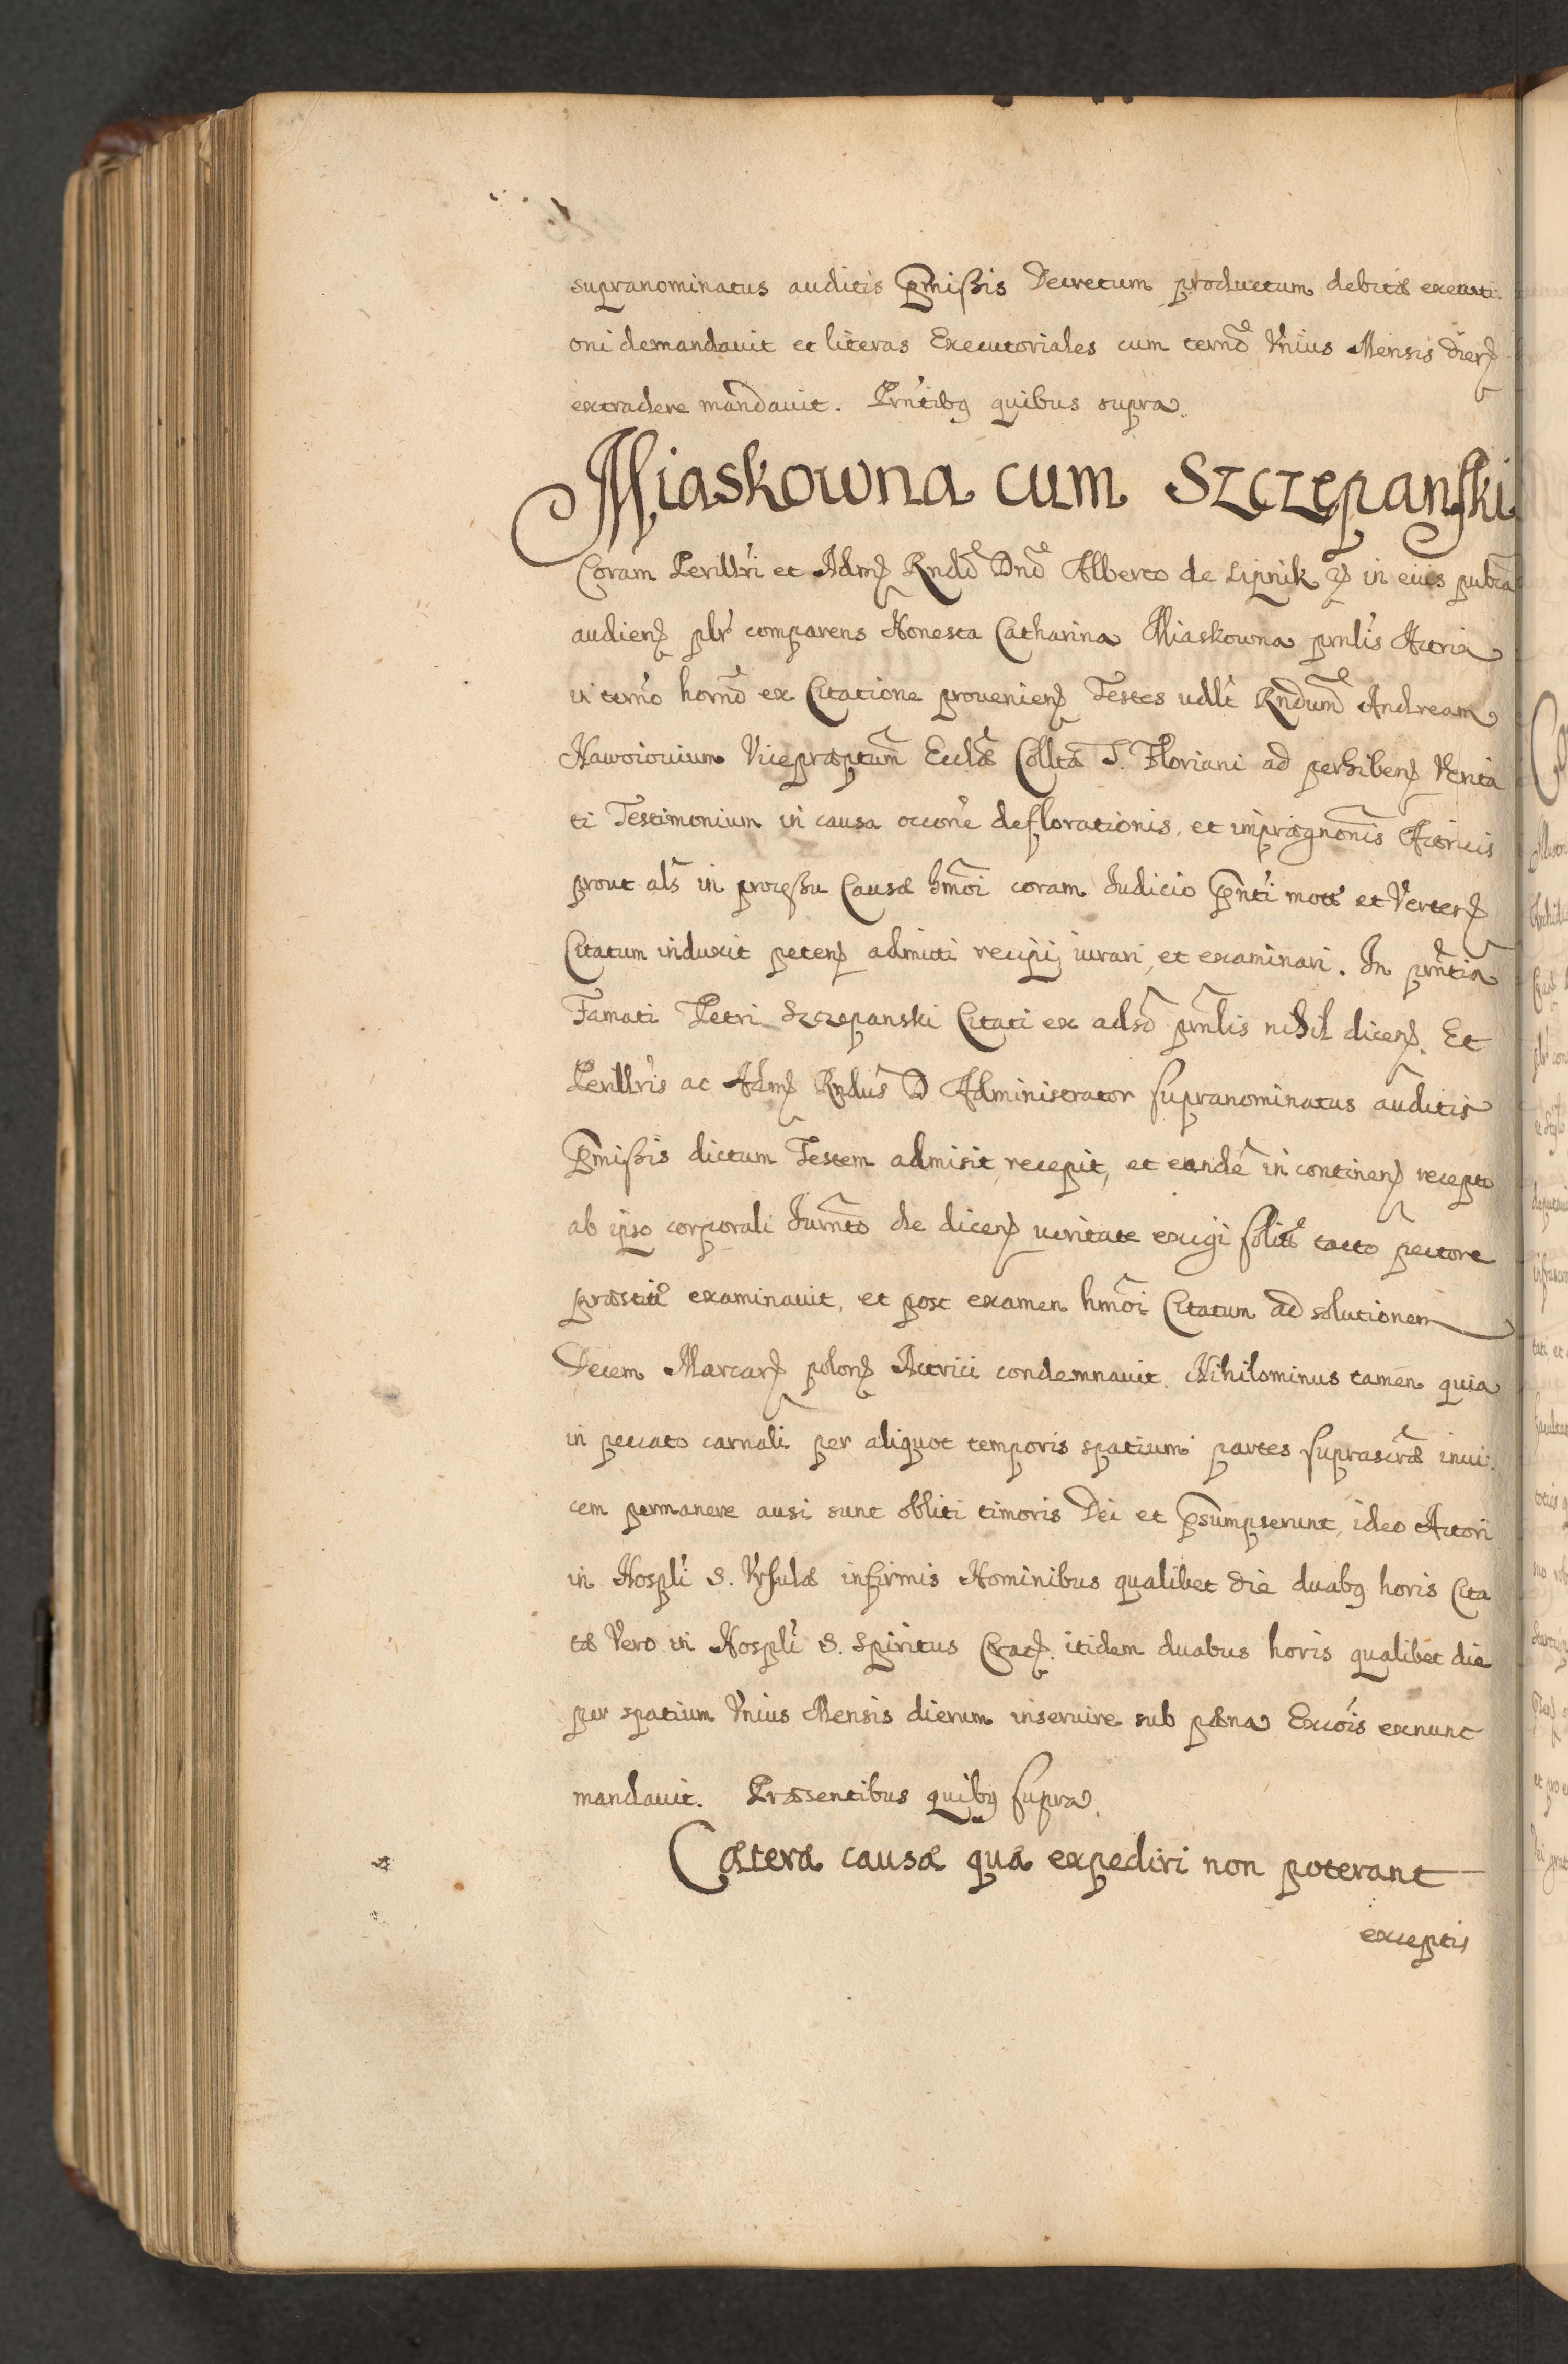 supranominatus auditis p̃missis Decretum productum debitæ executi.
oni demandauit et literas Executoriales cum termo Vnius Mensis dier
extradere mandauit. Prntibq quibus supra.
Miaskowna cum Szczepanski
Coram Perillri et Adm Rndo Dno Alberto de Lipnik in eius publca
audien plr comparens Honesta Catharina Miaskowna prnlis Actrix
in termo horno ex Citatione prouenien Testes vdlt Rndum Andream
Nawoiouium Vicepræptum Ecclæ Colltæ S. Floriani ad perhiben Verita
ti Testimonium in causa occone deflorationis, et imprægnonis Actricis
prout als in processu Causæ hmoi coram Iudicio p̃nti mott et Verten
Citatum induxit peten admitti recipi, iurari, et examinari. In prntia
Famati Petri Szczepanski Citati ex adso prnlis nihil dicen. Et
Perillris ac Adm Rndus D Administrator supranominatus auditis
p̃missis dictum Testem admisit, recepit, et eundẽ in continen recepto
ab ipso corporali Iurmto de dicen ueritate exigi solitt tacto pectore
præstito examinauit, et post examen hmoi Citatum ad solutionem
Decem Marcar polon Actrici condemnauit. Nihilominus tamen quia
in peccato carnali per aliquot temporis spatium partes suprascræ inui.
cem permanere ausi sunt obliti timoris Dei et p̃sumpserunt, ideo Actori
in Hospli S. Vrsulæ infirmis Hominibus qualibet die duabq horis Cita
tæ Vero in Hospli S. Spiritus Crac. itidem duabus horis qualibet die
per spatium Vnius Mensis dierum inseruire sub pæna Excois exnunc
mandauit. Præsentibus quibq supra.
Cæteræ causæ quæ expediri non poterant
exceptis